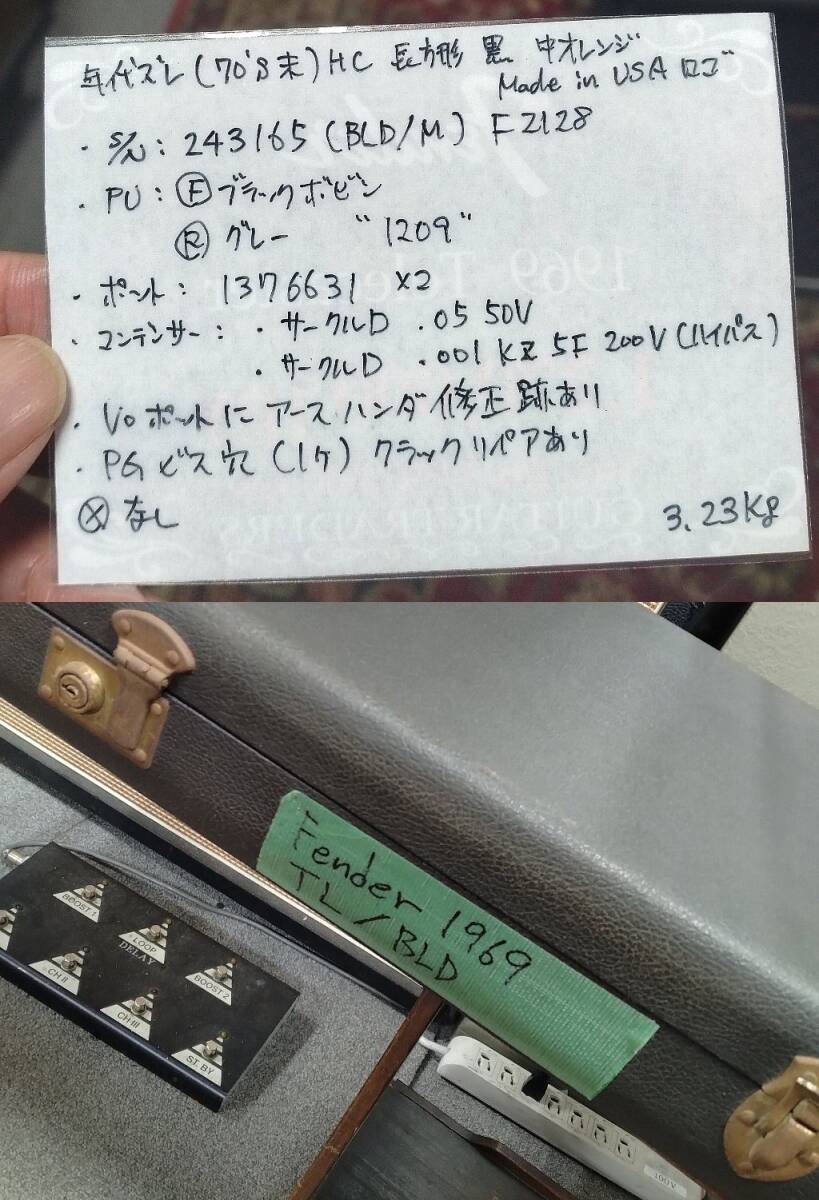 年代ズレ(70'S末) HC 長方形 黒 中オレンジ
Made in USA ロゴ
・S/N: 243165 (BLD/M) F2128
・PU: Ⓕ ブラックボビン
Ⓡ グレー "1209"
・ポット: 1376631 ×2
・コンデンサー: ・サークルD .05 50V
・サークルD .001 KZ 5F 200V (ハイパス)
・Voポットにアースハンダ修正跡あり
・PGビス穴(1ケ)クラックリペアあり
ⓧ なし 3.23Kg
Fender 1969
TL/BLD
BOOST 1
LOOP
DELAY
BOOST 2
CH II
CH III
ST.BY
100V